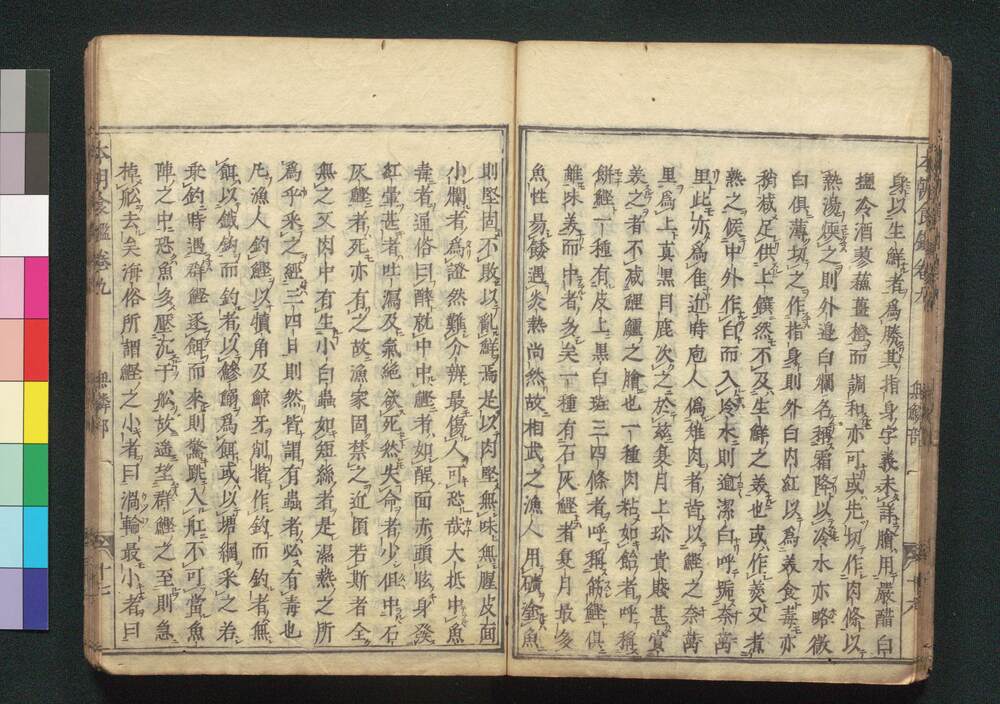 身以生鮮者爲勝其指身字義未詳膾用嚴醋白
鹽冷酒蓼蘓薑橙而調和亦可或先切作肉條以
熱湯煠之則外邉白爛名稱霜降以冷水亦略徵
白俱薄切之作指身則外白内紅以爲美食毒亦
稍减足供上饌然不及生鮮之美也或作炙又煮
熟之候中外作白而入冷水則逾潔白呼號奈萬
里此亦爲隹近時庖人僞雉肉者皆以鰹之奈萬
里爲上真黒目鹿次之於茲夏月上珍貴賤甚賞
美之者不减鯉鱸之膾也一種肉粘如飴者呼稱
餅鰹一種有皮上黒白班三四條者呼稱筋鰹俱
雖味美而中者多矣一種有石灰鰹者夏月最多
魚性易餒遇炎熱尚然故相武之漁人用礦塗魚
則堅固不敗以亂鮮焉是以肉堅無味無腥皮面
小爛者爲證然難分辨最傷人可恐哉大抵中魚
毒者通俗曰醉就中中鰹者如酲面赤頭眩身發
紅暈甚者吐瀉及氣絶欲死然失命者少但中石
灰鰹者死亦有之故漁家固禁之近頃若斯者全
無之又肉中有生小白蟲如短絲者是濕熱之所
爲乎采之經三四日則然皆謂有蟲者必有毒也
凢漁人釣鰹以犢角及鯨牙削揩作釣而釣者無
餌以鐵鈎而釣者以鰺鰯爲餌或以㙮網釆之若
乘釣時遇群鰹逐鰯而來則驚跳入舡不可當魚
陣之中恐魚多壓沉于舩故遥望群鰹之至則急
棹舩去矣海俗所謂鰹之小者曰渦輪最小者曰
本朝食鑑卷九
無鱗部
十七
本朝食鑑卷九
無鱗部